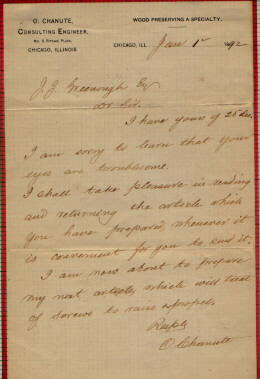 O. CHANUTE,
CONSULTING ENGINEER,
CHICAGO, ILLINOIS.
WOOD PRESERVING A SPECIALTY.
CHICAGO, ILL. Jan 1st 1892
J. J. Greenough Esq
Dr Sir.
I have yours of 28 Dec.
I am sorry to learn that your
eyes are troublesome.
I shall take pleasure in reading
and returning the article which
you have prepared, whenever it
is convenient for you to send it.
I am now about to prepare
my next article, which will treat
of screws to raise & propel.
Respy
O. Chanute